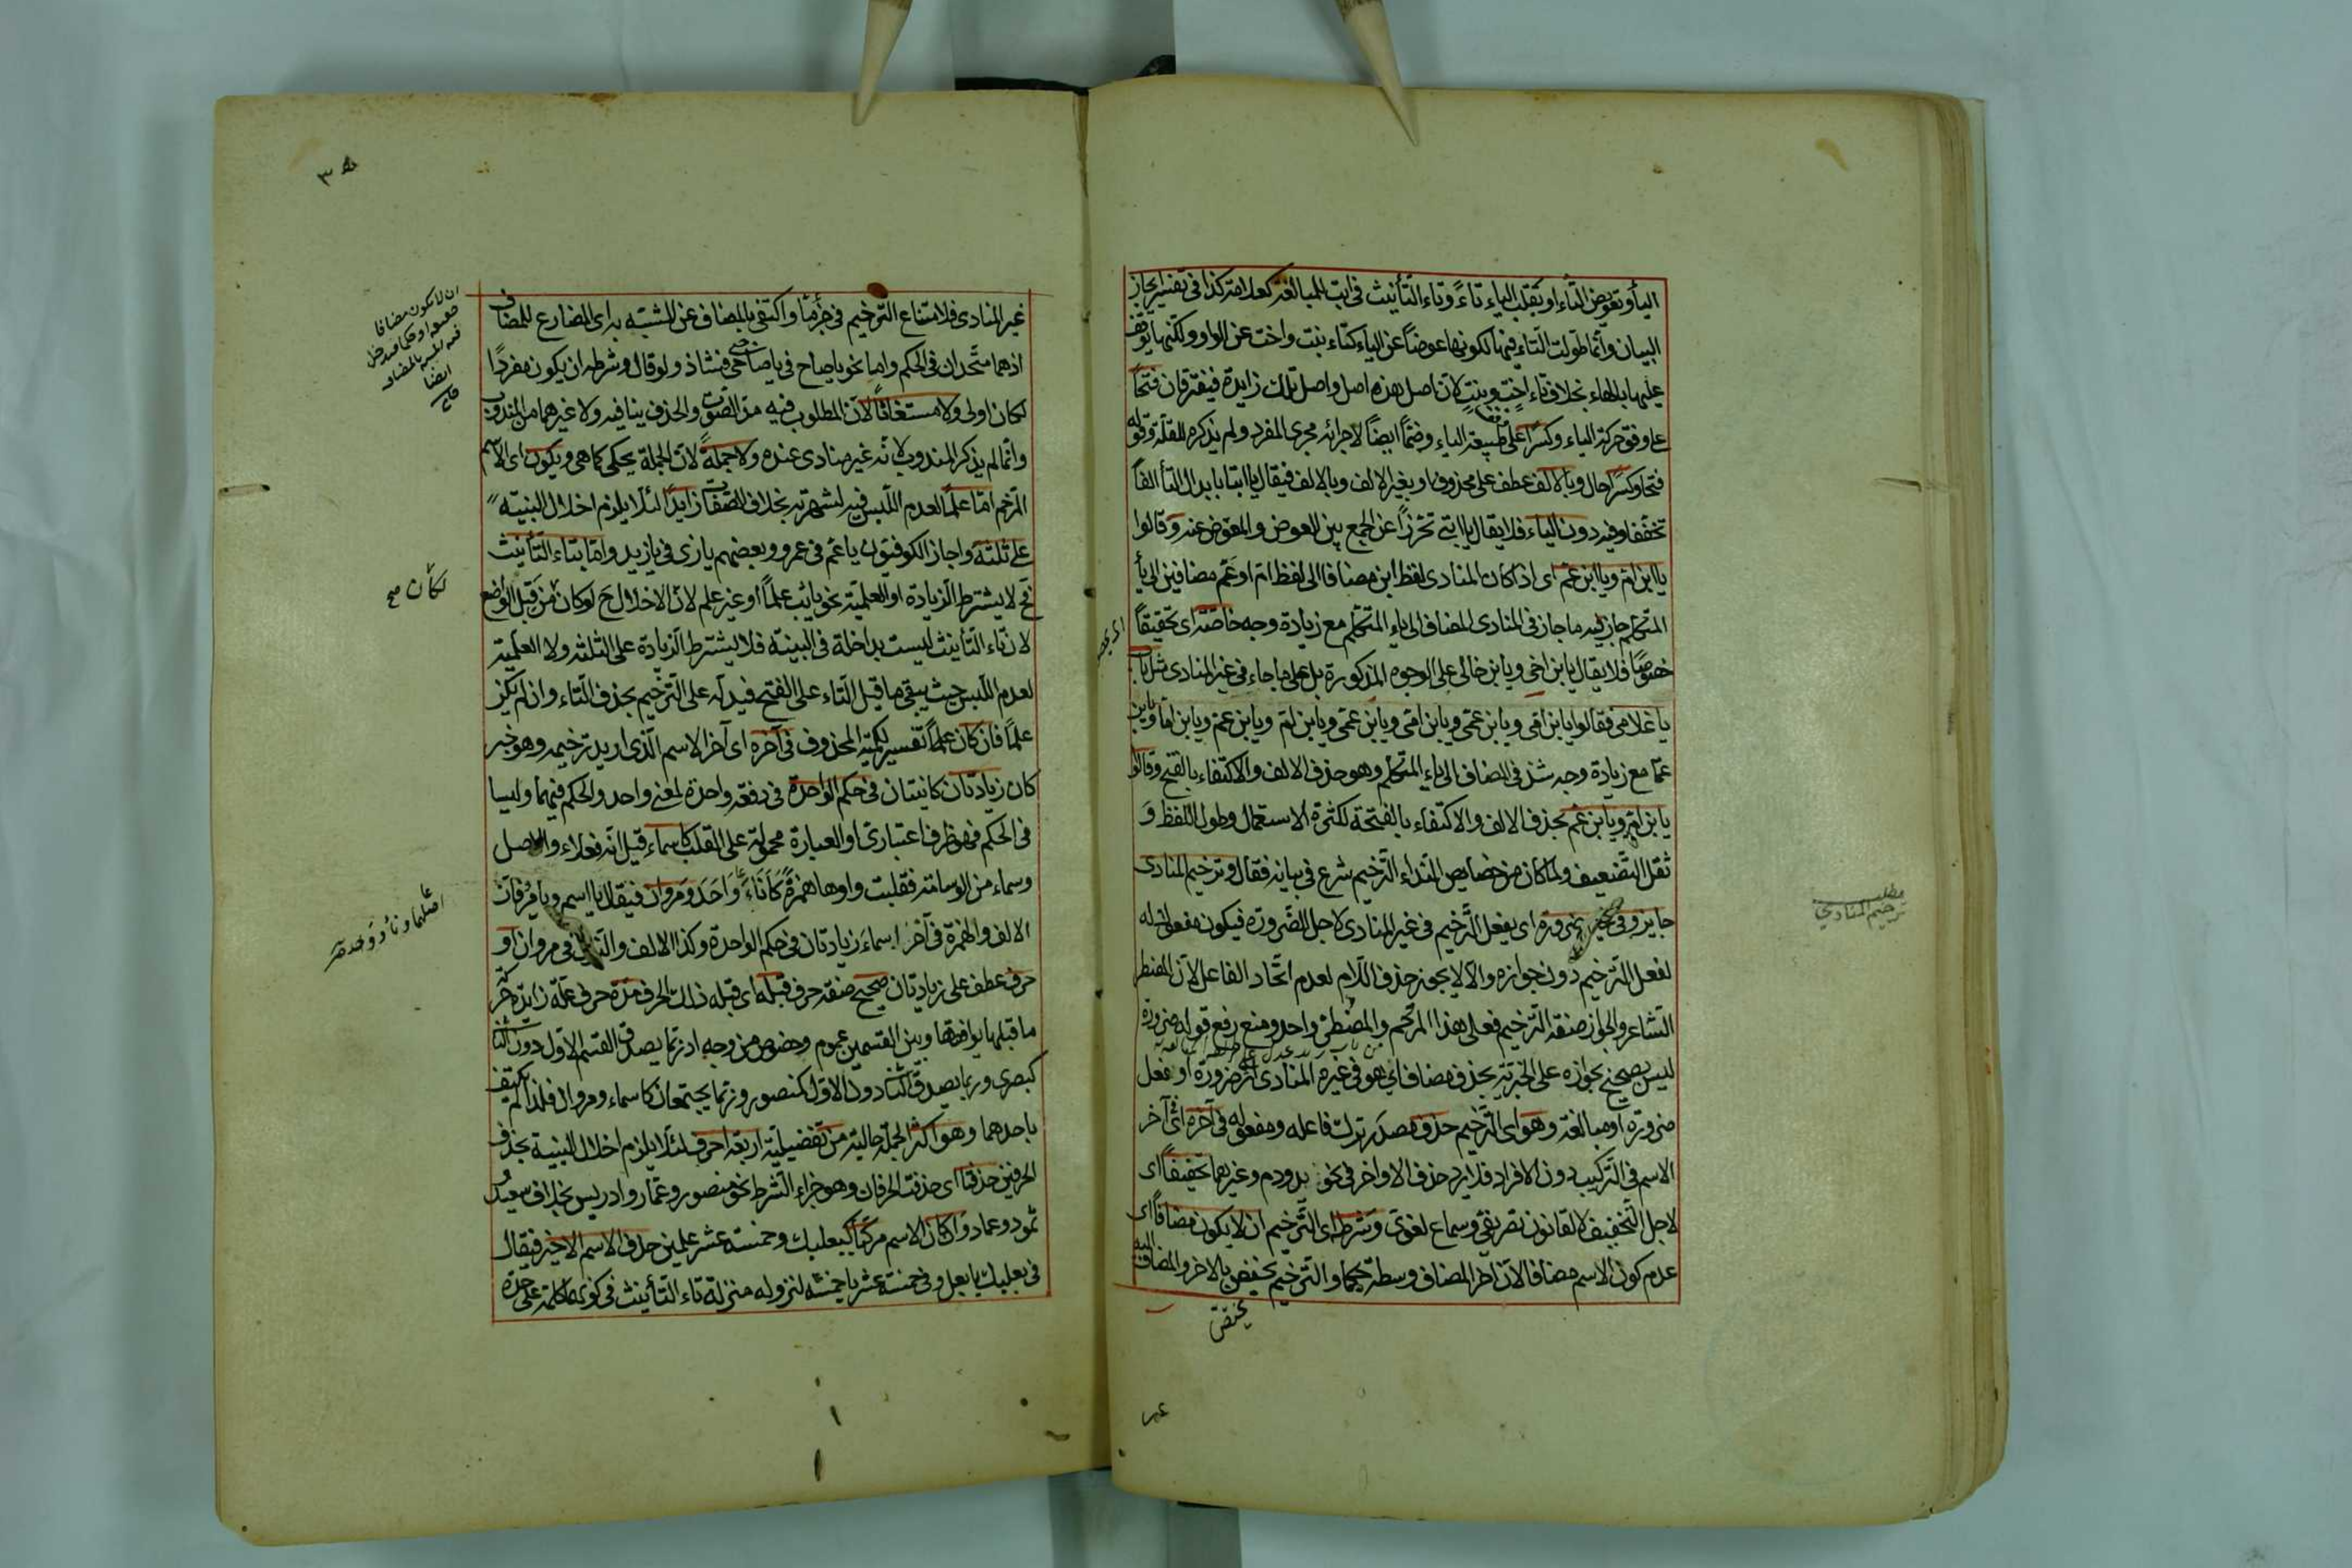 الياء وتعويض التاء او بقلب الياء تاءً وتاء التأنيث في ابت للمبالغة كعلامة كذا في تفسير
البيان وانما طولت التاء فيهما لكونها عوضًا عن الياء كتاء بنت واخت عن الواو ولكنها يوقف
عليها بالهاء بخلاف تاء اخت وبنت لان اصل هذه اصل واصل تلك زايدة فيفترقان فتحًا
على وفق حركة الياء وكسرًا على طبيعة الياء وضمًّا ايضًا لاجرائه مجرى المفرد ولم يذكره للقلة وقوله
فتحا وكسرًا حال وبالالف عطف على محذوف او بغير الالف وبالالف فيقال يا ابتا بابدال التاء الفًا
تخففا وفيه دون الياء فلا يقال يا ابتي تحرزًا عن الجمع بين العوض والمعوض عنه وقالوا
يا ابن ام ويا ابن عم اى اذا كان المنادى لفظ ابن مضافا الى لفظ ام او عم مضافين الى يا
المتكلم جاز فيه ما جاز في المنادى المضاف الى ياء المتكلم مع زيادة وجه خاصة اى تحقيقًا
خصوصًا فلا يقال يا بن اخى ويا بن خالى على الوجوه المذكورة بل على ما جاء في غير المنادى مثل باب
يا غلامى فقالوا يا بن امى ويا بن عمى ويا بن امى ويا بن عمى ويا بن ام ويا بن عم ويا بن اما ويا بن
عما مع زيادة وجه شذ في المضاف الى ياء المتكلم وهو حذف الالف والاكتفاء بالفتح وقالوا
يا بن ام ويا بن عم بحذف الالف والاكتفاء بالفتحة لكثرة الاستعمال وطول اللفظ و
ثقل التضعيف ولما كان من خصايص النداء الترخيم شرع في بيانه فقال وترخيم المنادى
جايز وفى غيره ضرورة اى يفعل الترخيم في غير المنادى لاجل الضرورة فيكون مفعولا له
لفعل الترخيم دون جوازه والا لا يجوز حذف اللام لعدم اتحاد الفاعل لان المضطر
الشاعر والجواز صفة الترخيم فعلى هذا المرخم والمضطر واحد ومنع رفع قوله ضرورة
ليس بصحيح بجوازه على الخبرية بحذف مضاف اى هو في غيره المنادى اثر ضرورة او فعل
ضرورة او مبالغة وهو اى الترخيم حذف مصدر ترك فاعله ومفعوله في آخره اى آخر
الاسم في التركيب دون الافراد فلا يرد حذف الاواخر في نحو يد ودم وغيرهما تخفيفًا اى
لاجل التخفيف لا لقانون تصريفى وسماع لغوى وشرطه اى الترخيم ان لا يكون مضافًا اى
عدم كون الاسم مضافا لان اخر المضاف وسط حكما والترخيم يختص بالاخر والمضاف اليه
يختص
مطلب
ترخيم المنادى
غير المنادى فلامتناع الترخيم في جزئها واكتفى بالمضاف عن المشبه به اى المضارع للمضاف
اذ هما متحدان في الحكم واما نحو يا صاح في يا صاحبى فشاذ ولو قال وشرطه ان يكون مفردًا
لكان اولى ولا مستغاثًا لان المطلوب فيه مد الصوت والحذف ينافيه ولا غيرهما من المندوب
وانما لم يذكر المندوب لانه غير منادى عنده ولا جملةً لان الجملة يحكى كما هى ويكون اى الاسم
المرخم اما علمًا لعدم اللبس فيه لشهرته بخلاف الصفات زايدًا لئلا يلزم اخلال البنية
على ثلثة واجاز الكوفيون يا عم في عمرو وبعضهم يا زى في يا زيد واما بتاء التأنيث
فح لا يشترط الزيادة او العلمية نحو يا ثب علمًا او غير علم لان الاخلال ح لو كان فمن قبل الواضع
لان تاء التأنيث ليست بداخلة في البنية فلا يشترط الزيادة على الثلثة ولا العلمية
لعدم اللبس حيث يبقى ما قبل التاء على الفتح فيدل على الترخيم بحذف التاء وان لم يكن
علمًا فان كان علمًا تفسير لكمية المحذوف في آخره اى آخر الاسم الذى اريد ترخيمه وهو خبر
كان زيادتان كائنتان في حكم الواحدة في دفعة واحدة لمعنى واحد والحكم فيهما وليسا
في الحكم فهو ظرف اعتبارى او العبارة محمولة على القلب كاسماء قيل انه فعلاء والاصل
وسماء من الوسامة فقلبت واوها همزةً كأناءَ وأحد ومروان فيقال يا اسم ويا مرو فان
الالف والهمزة في آخر اسماء زيادتان في حكم الواحدة وكذا الالف والنون في مروان او
حرف عطف على زيادتان صحيح صفة حرف قبله اى قبله ذلك الحرف مدة حرف علة زايدة حركة
ما قبلها يوافقها وبين القسمين عموم وخصوص من وجه اذ ربما يصدق القسم الاول دون الثانى
كبصرى وربما يصدق الثانى دون الاول كمنصور وربما يجتمعان كاسماء ومروان فلذا لم يكتف
باحدهما وهو اكثر الجملة حالية من تفضيلية اربعة احرف لئلا يلزم اخلال البنية بحذف
الحرفين حذفتا اى حذفت الحرفان وهو جزاء الشرط نحو منصور وعمار وادريس بخلاف سعيد
ثمود وعماد وان كان الاسم مركبًا كبعلبك وخمسة عشر علمين حذف الاسم الاخير فيقال
في بعلبك يا بعل وفى خمسة عشر يا خمسة لنزوله منزلة تاء التأنيث في كونها كلمة على حدة
ان لا يكون مضافا
ايضا
لكان صح